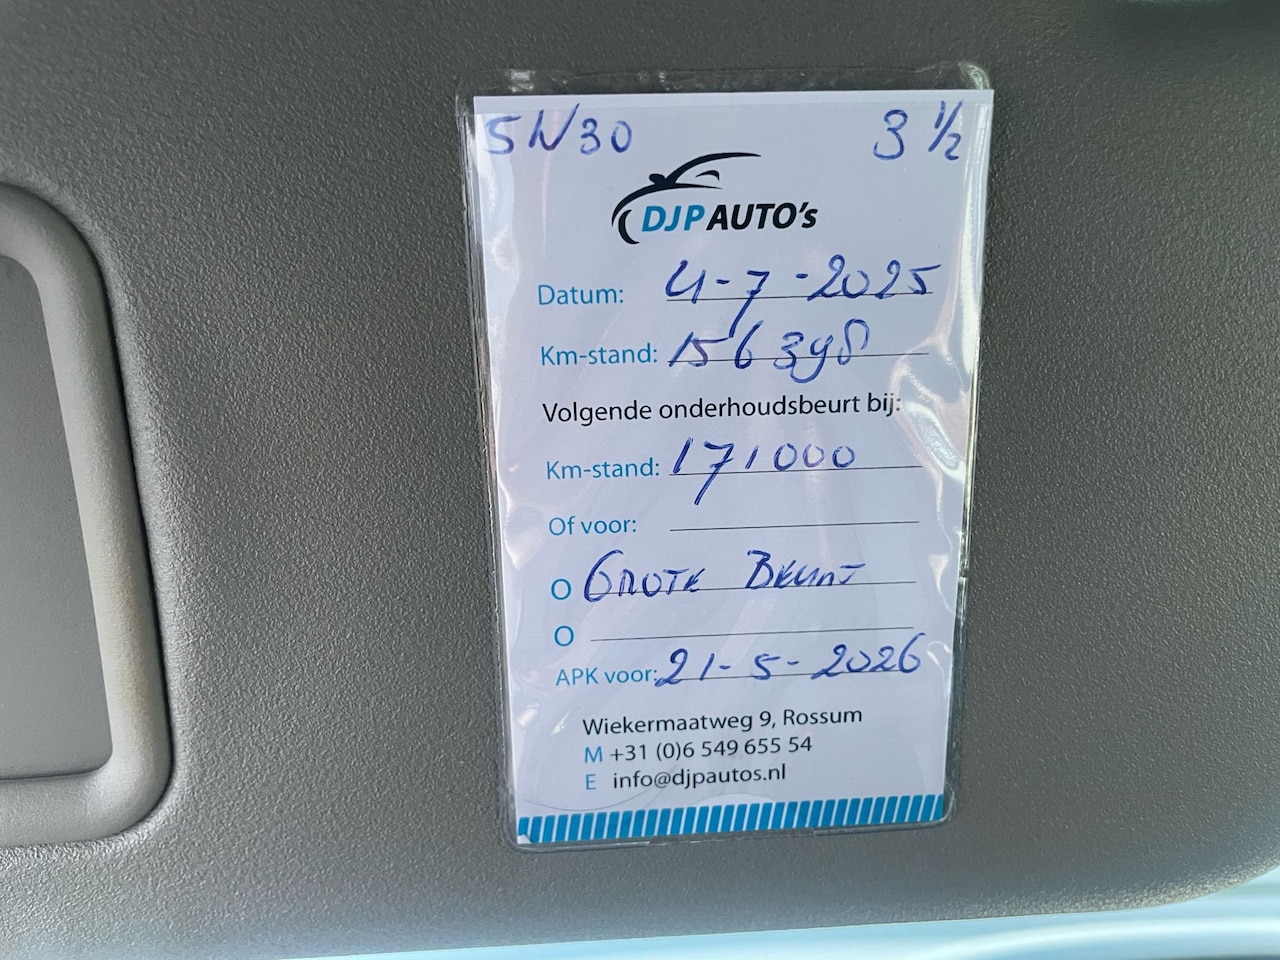 5W30 3 1/2
DJP AUTO's
Datum: 4-7-2025
Km-stand: 156398
Volgende onderhoudsbeurt bij:
Km-stand: 171000
Of voor:
O GROTE BEURT
O
APK voor: 21-5-2026
Wiekermaatweg 9, Rossum
M +31 (0)6 549 655 54
E info@djpautos.nl